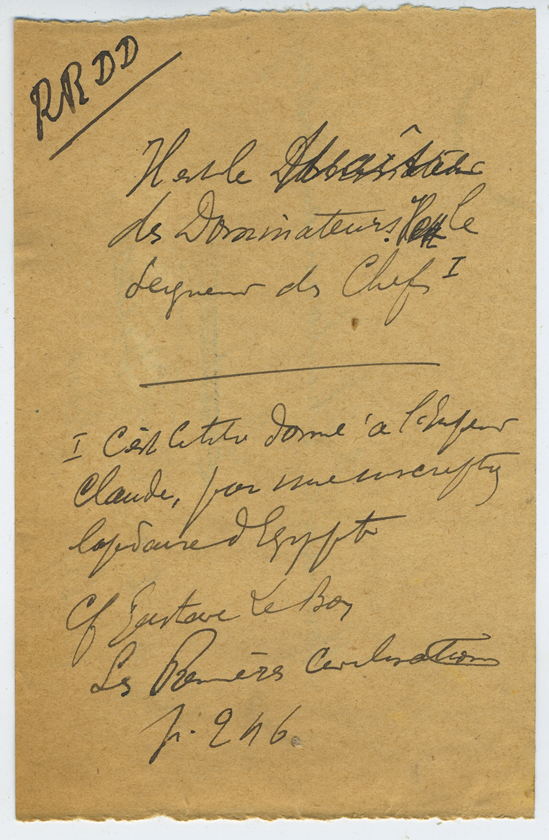 RRDD
Il est le
des Dominateurs. le
Seigneur des Chefs I
I C'est le titre donné à l'Empereur
Claude, par une inscription
lapidaire d'Egypte
Cf Gustave Le Bon
Les Premières Civilisations
p. 246.